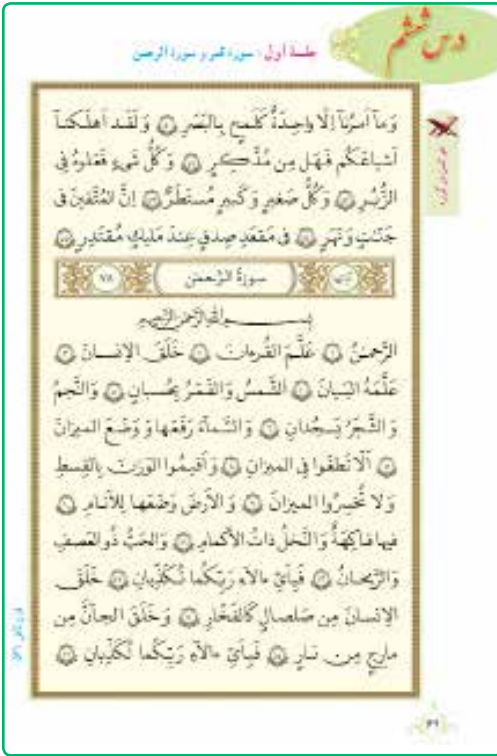 درس ششم
جلسهٔ اول : سورهٔ قمر و سورهٔ الرحمن
وَمآ اَمرُنآ اِلّا واحِدَةٌ كَلَمحٍ بِالبَصَرِ ۝ وَ لَقَد اَهلَكنآ
اَشياعَكُم فَهَل مِن مُدَّكِرٍ ۝ وَ كُلُّ شَيءٍ فَعَلوهُ فِى
الزُّبُرِ ۝ وَ كُلُّ صَغيرٍ وَ كَبيرٍ مُستَطَرٌ ۝ اِنَّ المُتَّقينَ فى
جَنّاتٍ وَ نَهَرٍ ۝ فى مَقعَدِ صِدقٍ عِندَ مَليكٍ مُقتَدِرٍ ۝
سورة الرّحمن ٧٨
بِسمِ اللهِ الرَّحمنِ الرَّحيمِ
الرَّحمنُ ١ عَلَّمَ القُرءانَ ٢ خَلَقَ الاِنسانَ ٣
عَلَّمَهُ البَيانَ ٤ اَلشَّمسُ وَ القَمَرُ بِحُسبانٍ ٥ وَ النَّجمُ
وَ الشَّجَرُ يَسجُدانِ ٦ وَ السَّمآءَ رَفَعَها وَ وَضَعَ الميزانَ
٧ اَلّا تَطغَوا فِى الميزانِ ٨ وَ اَقيمُوا الوَزنَ بِالقِسطِ
وَ لا تُخسِرُوا الميزانَ ٩ وَ الاَرضَ وَضَعَها لِلاَنامِ ١٠
فيها فاكِهَةٌ وَ النَّخلُ ذاتُ الاَكمامِ ١١ وَ الحَبُّ ذُو العَصفِ
وَ الرَّيحانُ ١٢ فَبِاَىِّ ءالآءِ رَبِّكُما تُكَذِّبانِ ١٣ خَلَقَ
الاِنسانَ مِن صَلصالٍ كَالفَخّارِ ١٤ وَ خَلَقَ الجآنَّ مِن
مارِجٍ مِن نارٍ ١٥ فَبِاَىِّ ءالآءِ رَبِّكُما تُكَذِّبانِ ١٦